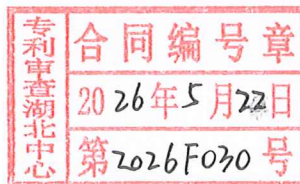 专利审查湖北中心
合同编号章
2026年5月22日
第2026F030号